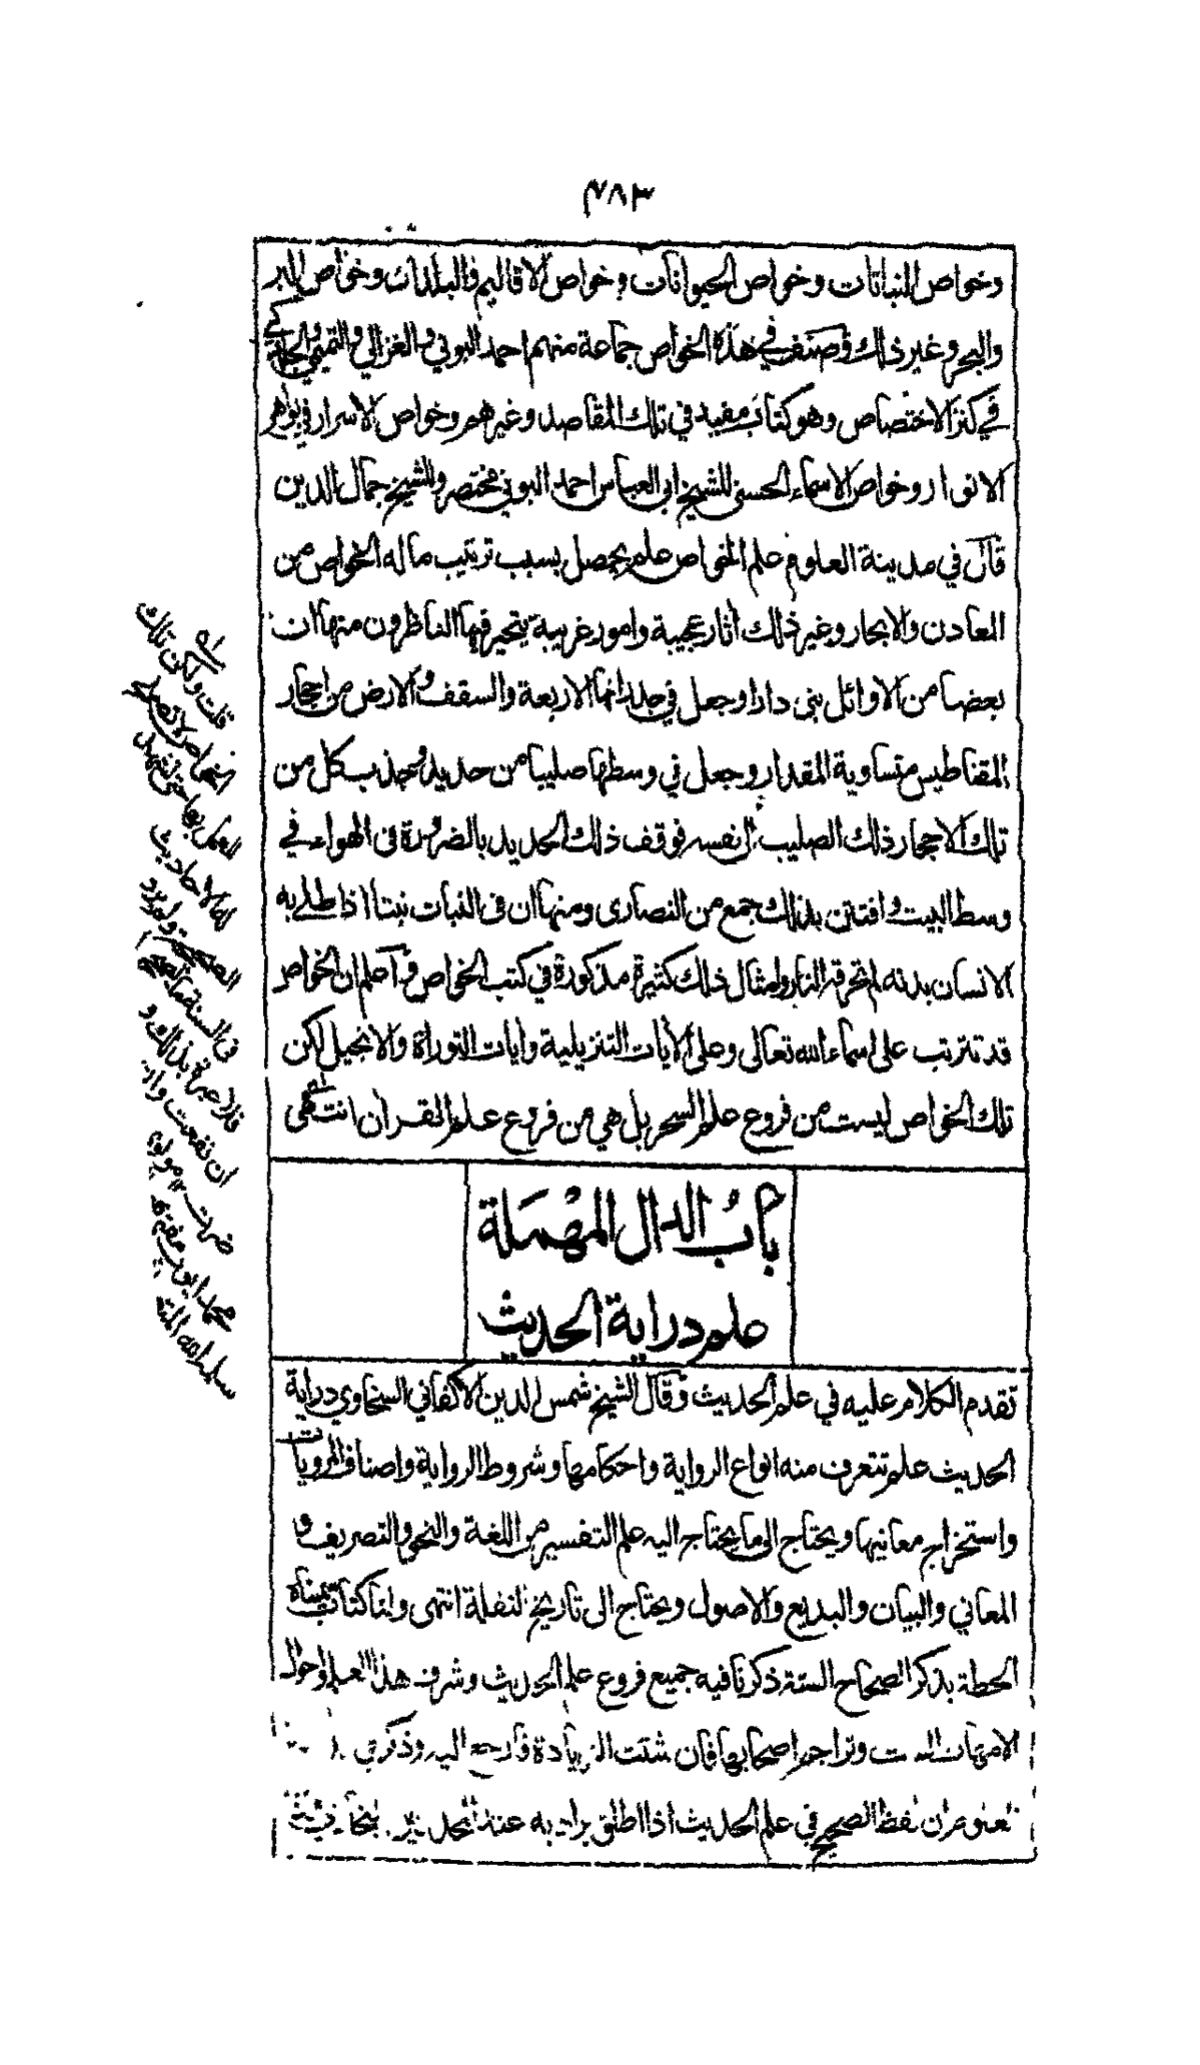 ٤٨٣
وخواص النباتات وخواص الحيوانات وخواص الاقاليم والبلدان وخواص البر
والبحر وغير ذلك وصنف في هذه الخواص جماعة منهم احمد البوني والغزالي والتميمي والجلدكي
في كنز الاختصاص وهو كتاب مفيد في تلك المقاصد وغيرهم وخواص الاسرار في بواهر
الانوار وخواص الاسماء الحسنى للشيخ ابي العباس احمد البوني مختصر وللشيخ جمال الدين
قال في مدينة العلوم علم الخواص علم يحصل بسبب ترتيب ماله الخواص من
المعادن والاحجار وغير ذلك اثار عجيبة وامور غريبة يتحير فيها الناظرون منها ان
بعضا من الاوائل بنى دارا وجعل في جدرانها الاربعة والسقف والارض من احجار
المقناطيس متساوية المقدار وجعل في وسطها صليبا من حديد وجذب كل من
تلك الاحجار ذلك الصليب الى نفسه فوقف ذلك الحديد بالضرورة في الهواء في
وسط البيت وافتتن بذلك جمع من النصارى ومنها ان في النبات نبتا اذا طلى به
الانسان بدنه لم تحرقه النار وامثال ذلك كثيرة مذكورة في كتب الخواص واعلم ان الخواص
قد تترتب على اسماء الله تعالى وعلى الآيات التنزيلية وايات التوراة والانجيل لكن
تلك الخواص ليست من فروع علم السحر بل هي من فروع علم القران انتهى
قلت ولكن تلك
الخواص لا تصلح
للعمل بها حتى تشهد
له الاحاديث
الصحيحة
ان نفعت وان
ضرت
محمد ايوب
سلمه الله
باب الدال المهملة
علم دراية الحديث
تقدم الكلام عليه في علم الحديث وقال الشيخ شمس الدين الاكفاني السخاوي دراية
الحديث علم تتعرف منه انواع الرواية واحكامها وشروط الرواية واصناف المرويات
واستخراج معانيها ويحتاج الى ما يحتاج اليه علم التفسير من اللغة والنحو والتصريف و
المعاني والبيان والبديع والاصول ويحتاج الى تاريخ النقلة انتهى ولنا كتاب سميناه
الحطة بذكر الصحاح الستة ذكرنا فيه جميع فروع علم الحديث وشرف هذا العلم واحوال
الامهات الست وتراجم اصحابها فان شئت الزيادة فارجع اليه وذكر في
العلوم ان لفظ الصحيح في علم الحديث اذا اطلق يراد به عند المحدثين